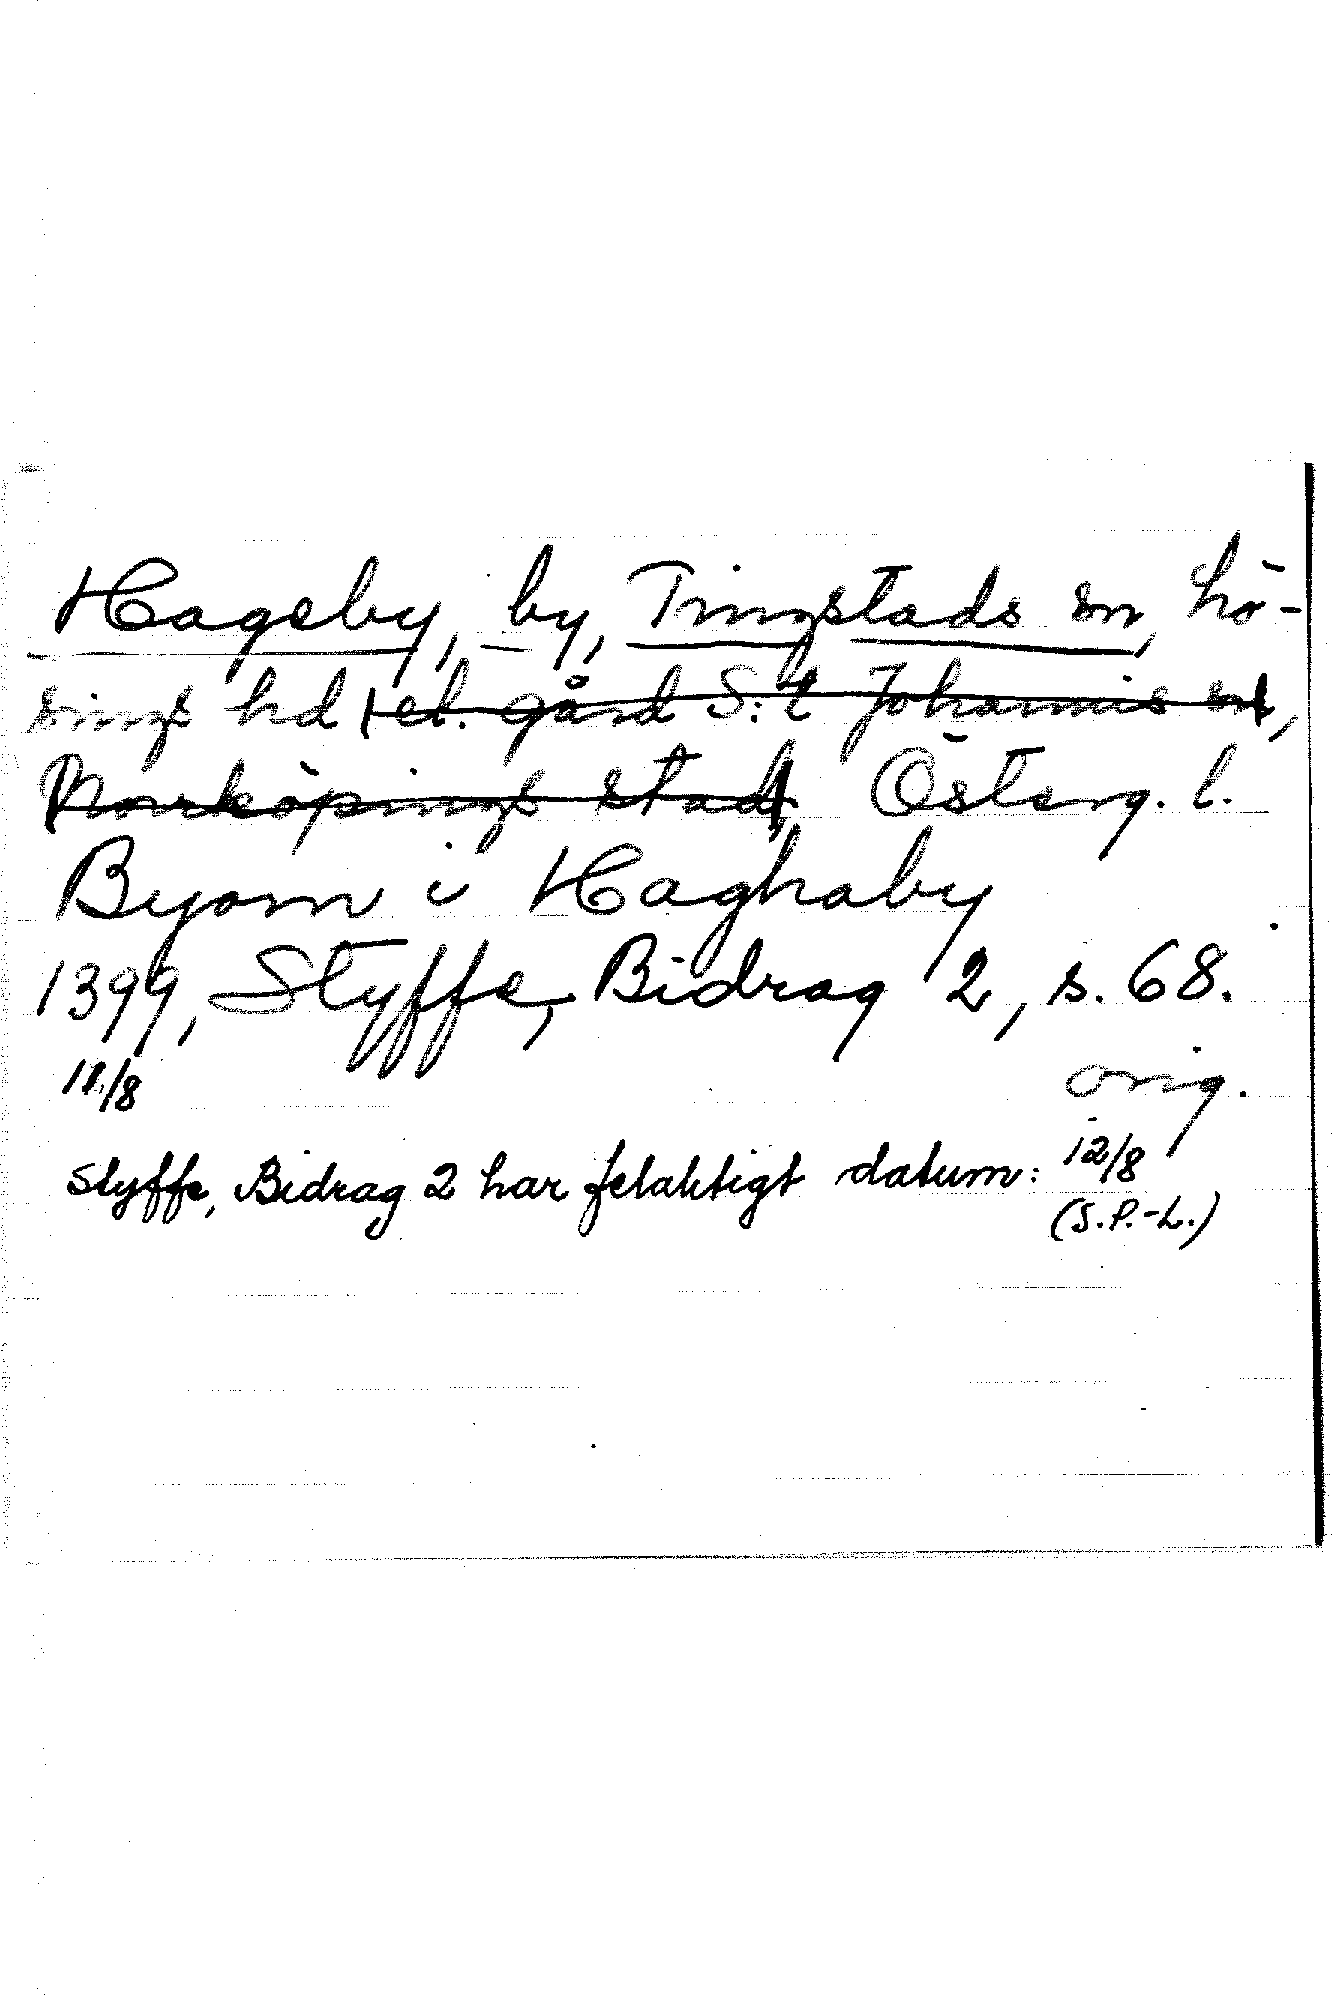 Hageby, by, Tingstads sn, Lö-
sings hd, el. gård S:t Johannis sn,
Norrköpings stad, Österg. l.
Byorn i Haghaby
1399, Styffe, Bidrag 2, s. 68.
11/8 orig.
Styffe, Bidrag 2 har felaktigt datum: 12/8
(S.P.-L.)